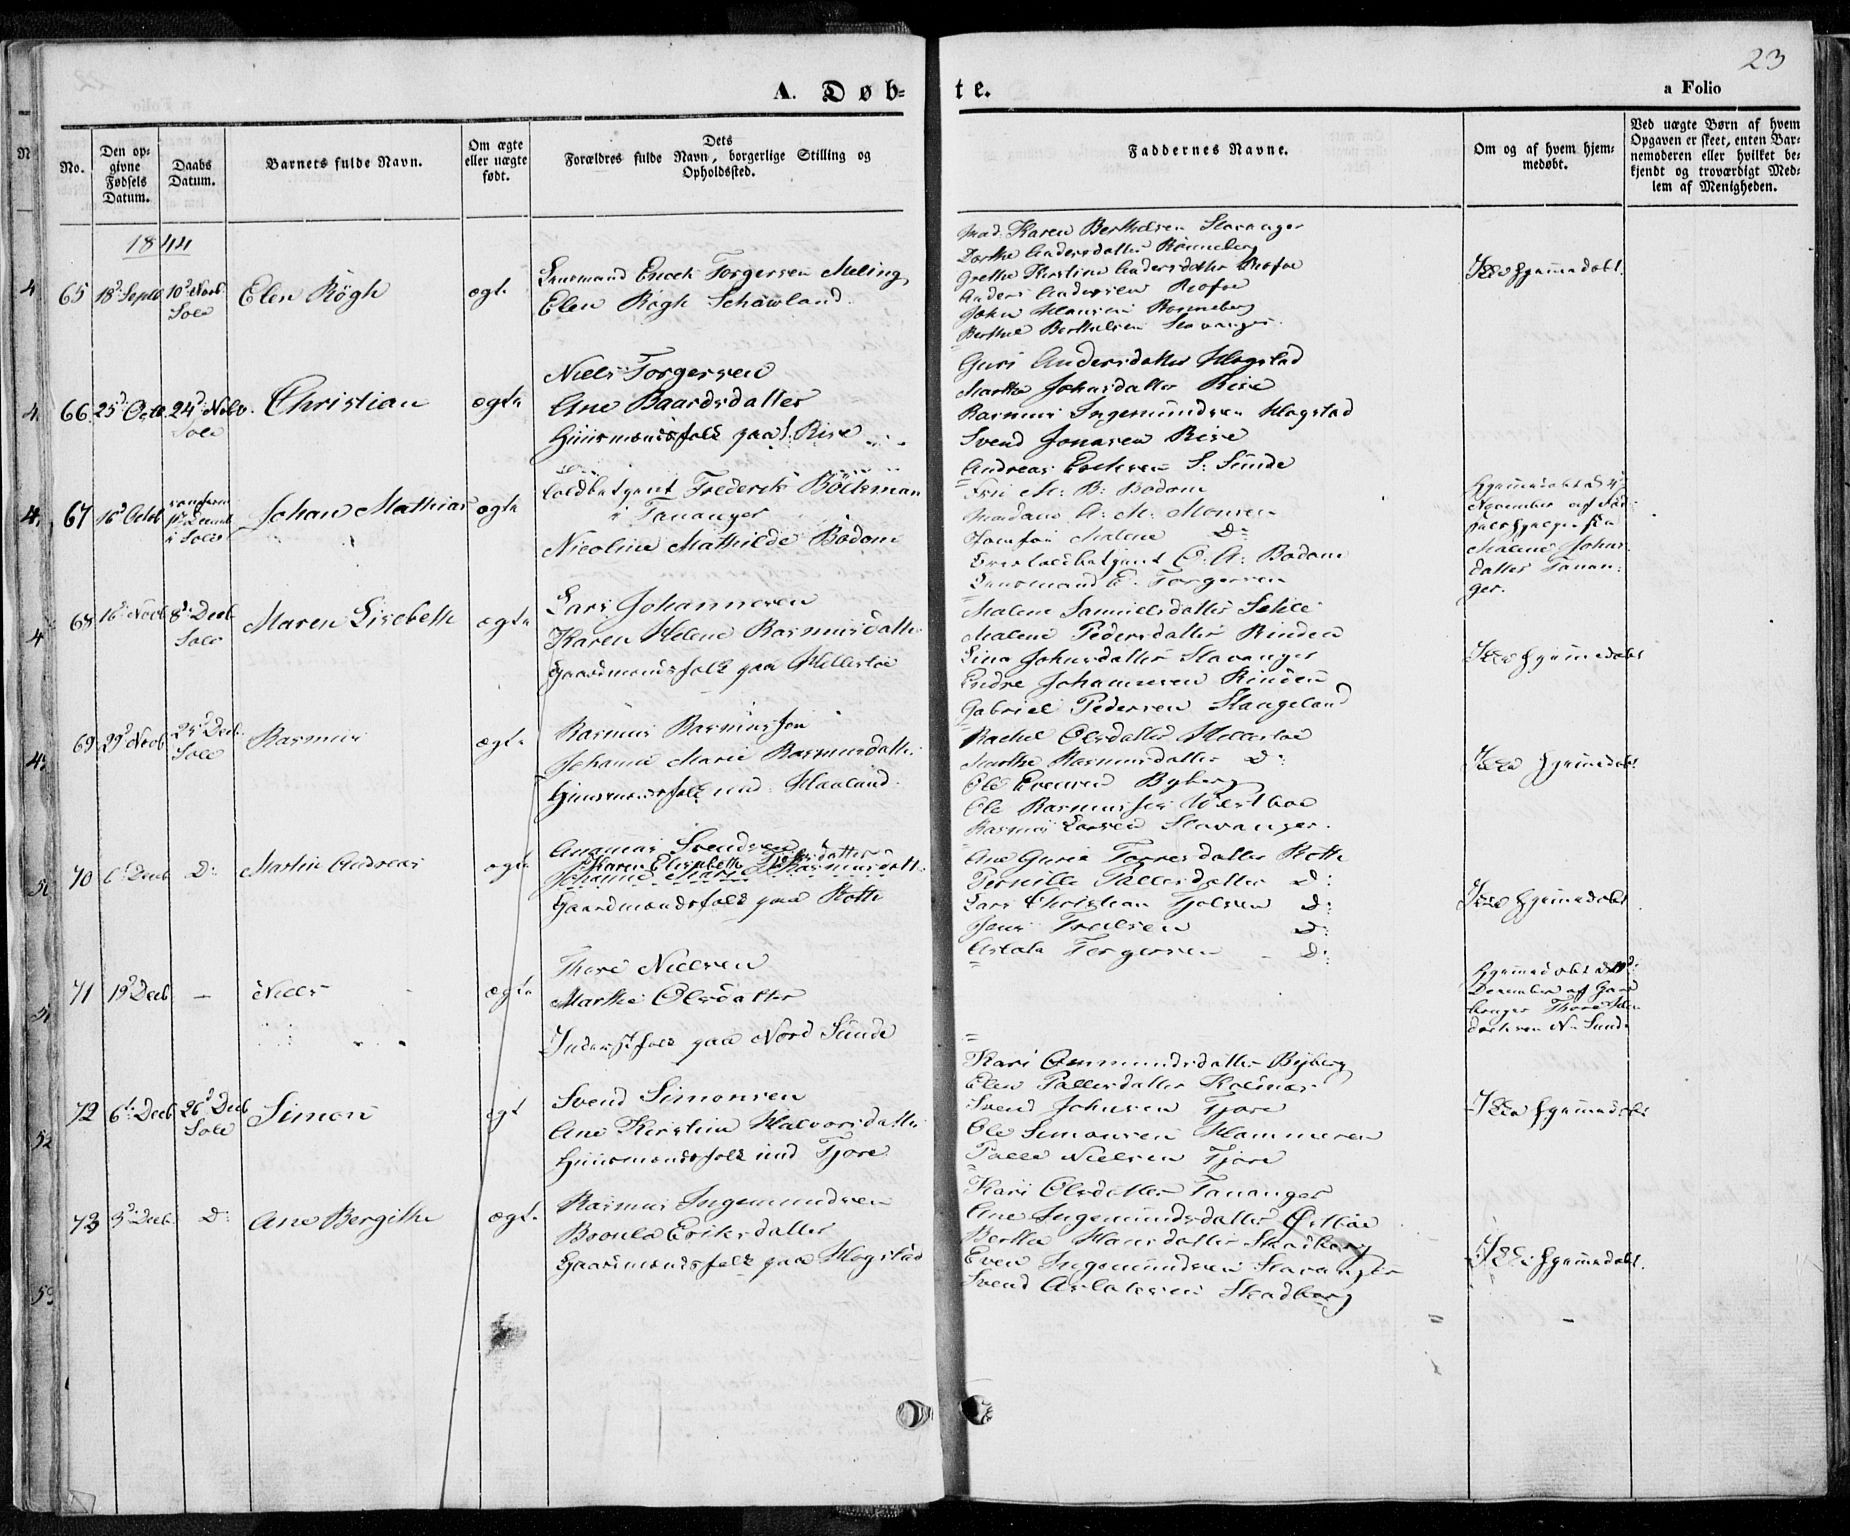 23
A. Døb-
te.
a Folio
No.
Den op-
givne
Fødsels
Datum.
Daabs
Datum.
Barnets fulde Navn.
Om ægte
eller uægte
født.
Dets
Forældres fulde Navn, borgerlige Stilling og
Opholdssted.
Faddernes Navne.
Om og af hvem hjem-
medøbt.
Ved uægte Børn af hvem
Opgaven er skeet, enten Bar-
nemoderen eller hvilket be-
kjendt og troværdigt Med-
lem af Menigheden.
1844
65
18d Septb
10d Novb
Sole
Elen Røgh
ægte
Lensmand Torgersen Meling
Elen Røgh Schawland
Mad. Karen Berthelsen Stavanger
Dorthe Andersdatter Rönneberg
Grethe Kirstine Andersdatter
Anders Andersen
John Hansen Rönneberg
Berthel Berthelsen Stavanger
Ikke hjemmedøbt
66
25d Octb.
24d Novb.
Sole
Christian
ægte
Niels Torgersen
Ane Baardsdatter
Huusmandsfolk paa Rise
Guri Andersdatter Hogstad
Marthe Johnsdatter Rise
Rasmus Ingemundsen Hogstad
Svend Jonasen Rise
Andreas S: Sunde
67
16d Octb
i Sole
Johan Mathias
ægte
Toldbetjent Frederik Böckman
i Tananger
Nicoline Mathilde Bodom
M: B: Bodom
Madam A. M: Monsen
Jomfru Malene D:
Toldbetjent O. A: Bodom
Lensmand E. Torgersen
Hjemmedøbt d 4
November af
Malene Johns-
datter Tanan-
ger.
68
16d Novb
8d Decb
Sole
Maren Lisebeth
ægte
Lars Johannesen
Karen Helene Rasmusdatter
Gaardmandsfolk paa Hellestøe
Malene Samuelsdatter
Malene Pedersdatter Rinden
Lina Johnsdatter Stavanger
Endre Johannesen Rinden
Gabriel Pedersen Stangeland
Ikke hjemmedøbt
69
29d Novb
25d Decb.
Sole
Rasmus
ægte
Rasmus Rasmussen
Johanne Marie Rasmusdatter
Huusmandsfolk und: Haaland
Rachel Olsdatter Hellestøe
Marthe Rasmusdatter D:
Ole Evensen Byberg
Ole Rasmussen
Rasmus Larsen Stavanger.
Ikke hjemmedøbt
70
6d Decb
D:
Martin Andreas
ægte
Svendsen
Karen Elisabeth
Johanne Marie Rasmusdatter
Gaardmandsfolk paa Rotte
Ane Guria Torresdatter Rotte
Pernille Tallersdatter D:
Lars Christian D:
D:
Aslak Torgersen D:
Ikke hjemmedøbt
71
19d Decb
–
Niels
ægte
Thore Nielsen
Marthe Olsdatter
Inderstfolk paa Nord Sunde
Hjemmedøbt d 19d
December af Gaard-
bruger Thore
N. Sunde
72
6d Decb
26d Decb
Sole
Simon
ægt
Svend Simonsen
Ane Kirstine Halvorsdatter
Huusmandsfolk und Tjore
Kari Ommundsdatter Byberg
Elen Tallersdatter Kolnes
Svend Johnsen Tjore
Ole Simonsen Hammeren
Talle Nielsen Tjore
Ikke hjemmedøbt
73
3d Decb.
D:
Ane Bergithe
ægte
Rasmus Ingemundsen
Eriksdatter
Gaardmandsfolk paa Hogstad
Kari Olsdatter Tananger
Ane Ingemundsdatter Østbøe
Berthe Hansdatter Skadberg
Even Ingemundsen Stavanger
Svend Aslaksen Skadberg
Ikke hjemmedøbt.